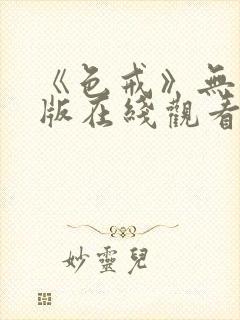 《色戒》無
版在綫觀看
妙靈兒